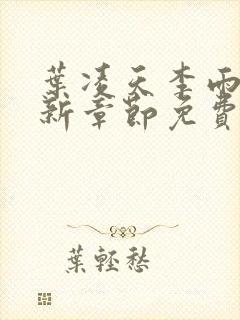 葉凌天李雨
新章節免費
葉輕愁